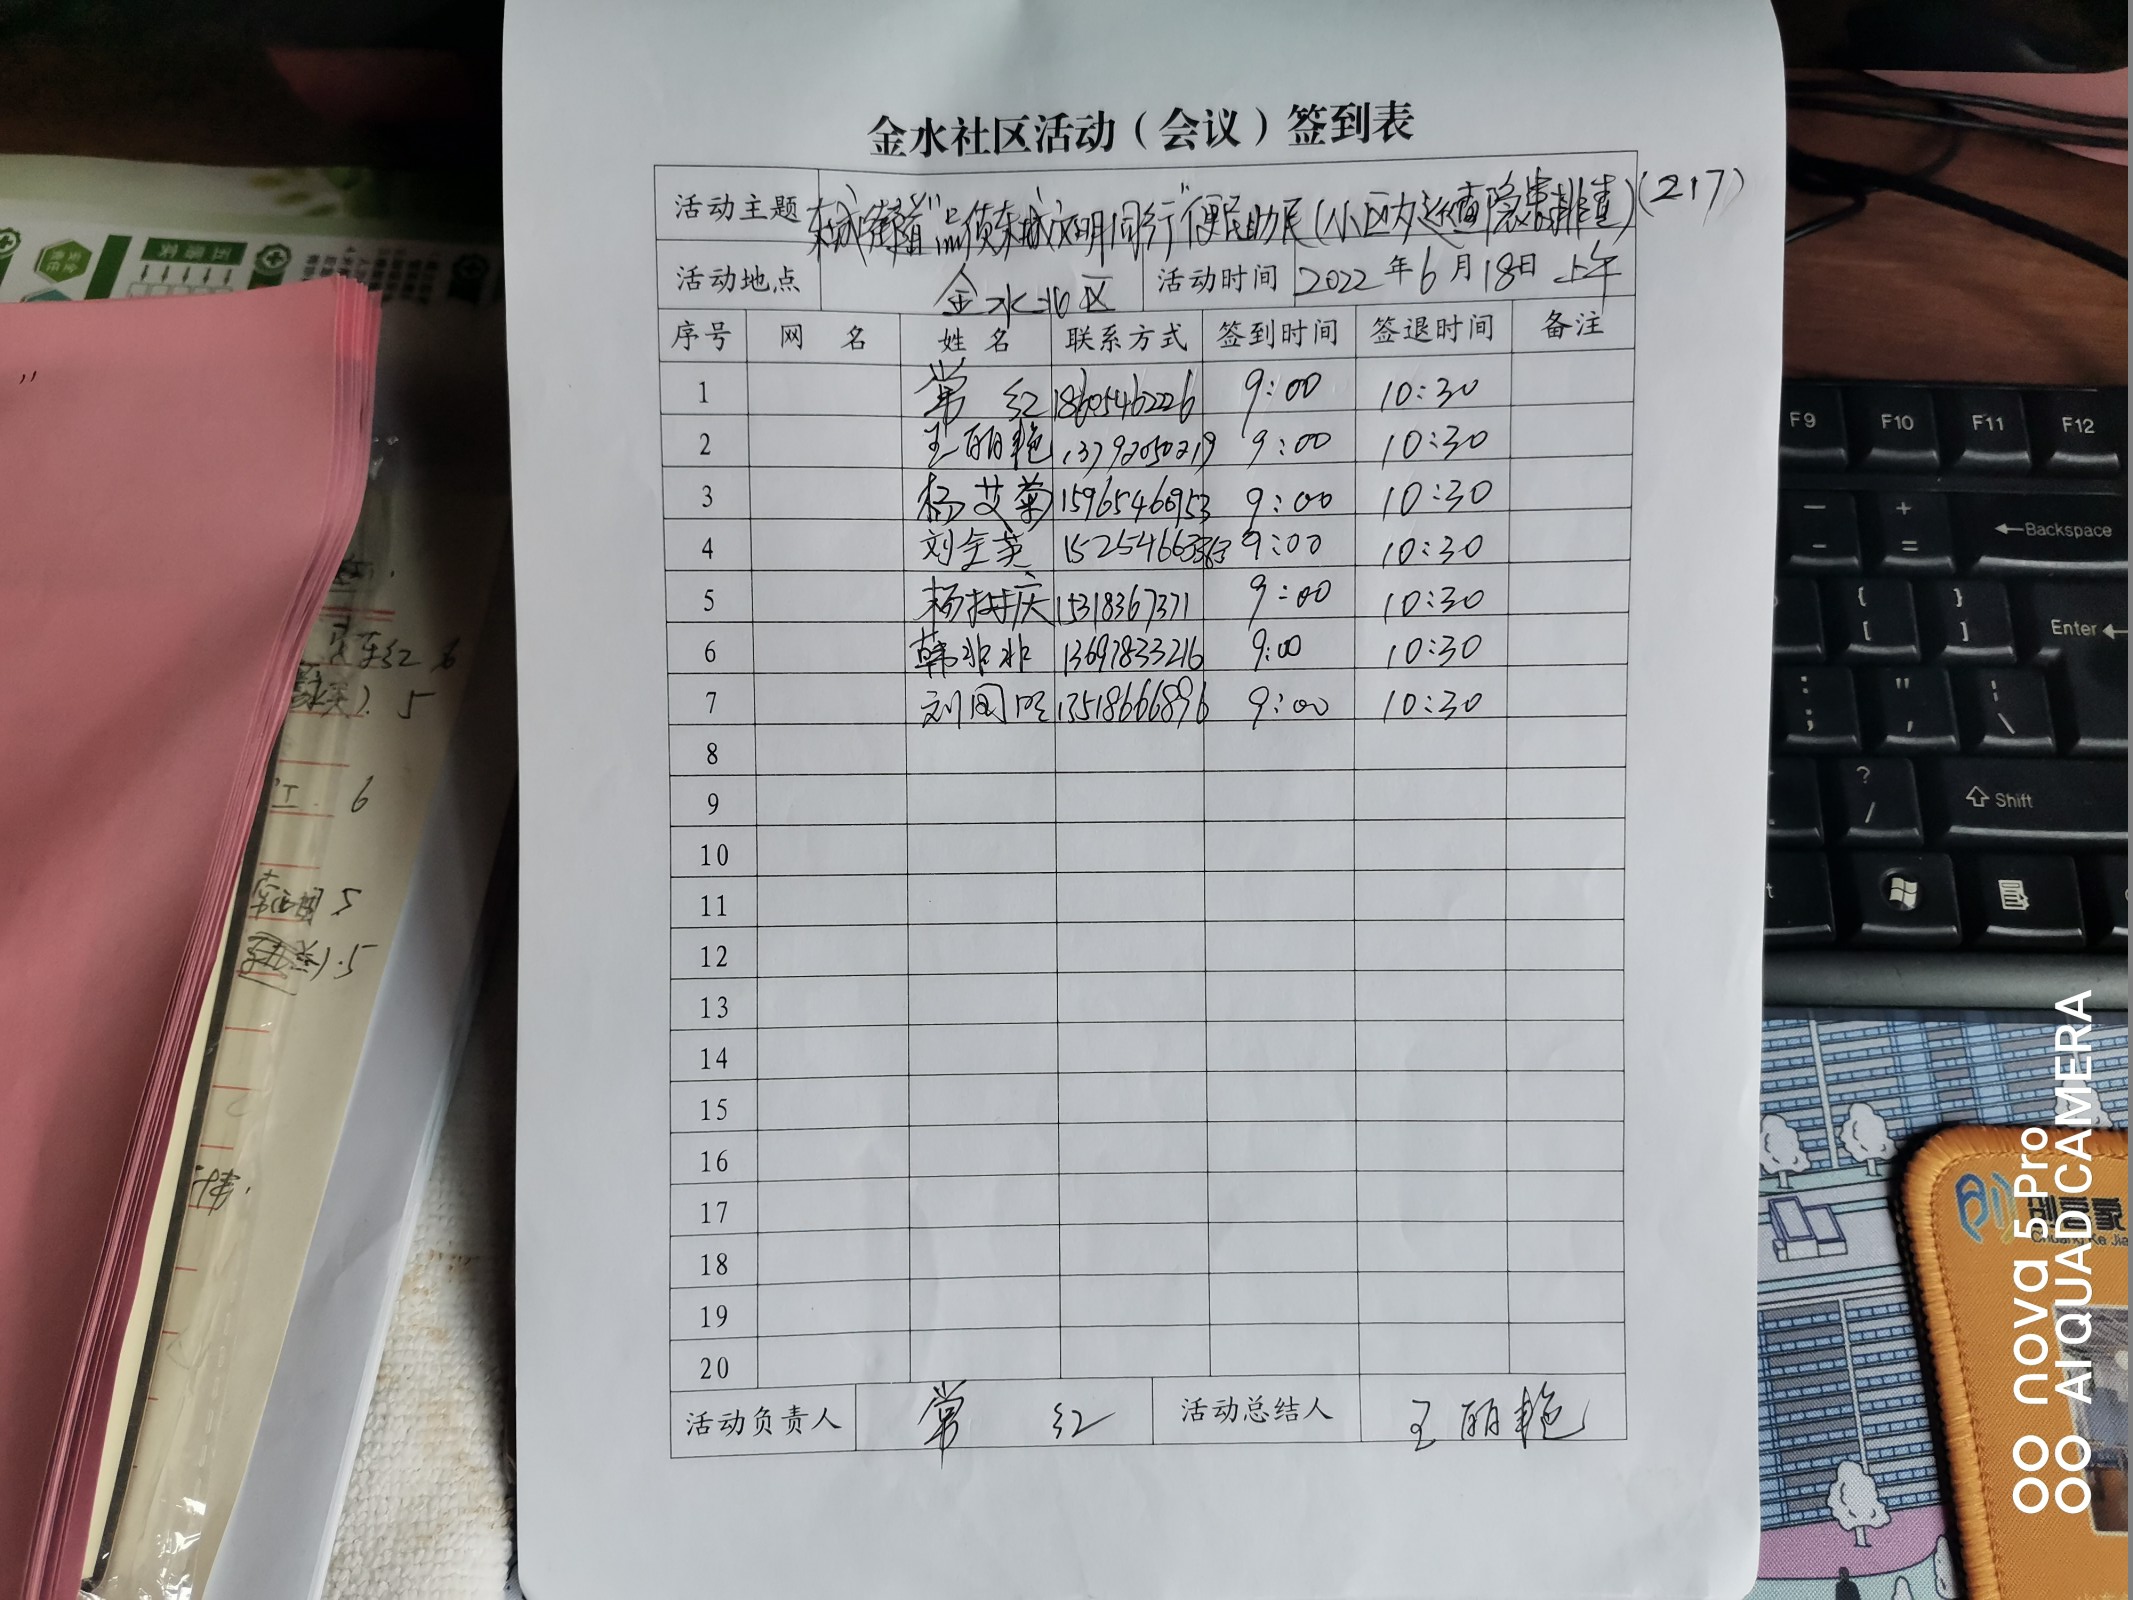 金水社区活动（会议）签到表
活动主题 东城街道"品质东城文明同行"便民助民(小区内巡查隐患排查)(217)
活动地点 金水北区 活动时间 2022年6月18日 上午
序号 网 名 姓 名 联系方式 签到时间 签退时间 备注
1 常 红 18605462226 9:00 10:30
2 王丽艳 13792050219 9:00 10:30
3 杨艾菊 15965460953 9:00 10:30
4 刘全英 9:00 10:30
5 杨树庆 15318367371 9:00 10:30
6 韩非非 13697833216 9:00 10:30
7 刘国 13518666896 9:00 10:30
8
9
10
11
12
13
14
15
16
17
18
19
20
活动负责人 常 红 活动总结人 王丽艳
五 6
5
6
5
5
F9 F10 F11 F12
Backspace
Enter
Shift
创客家
Chuang Ke Jia
nova 5 Pro
AI QUAD CAMERA